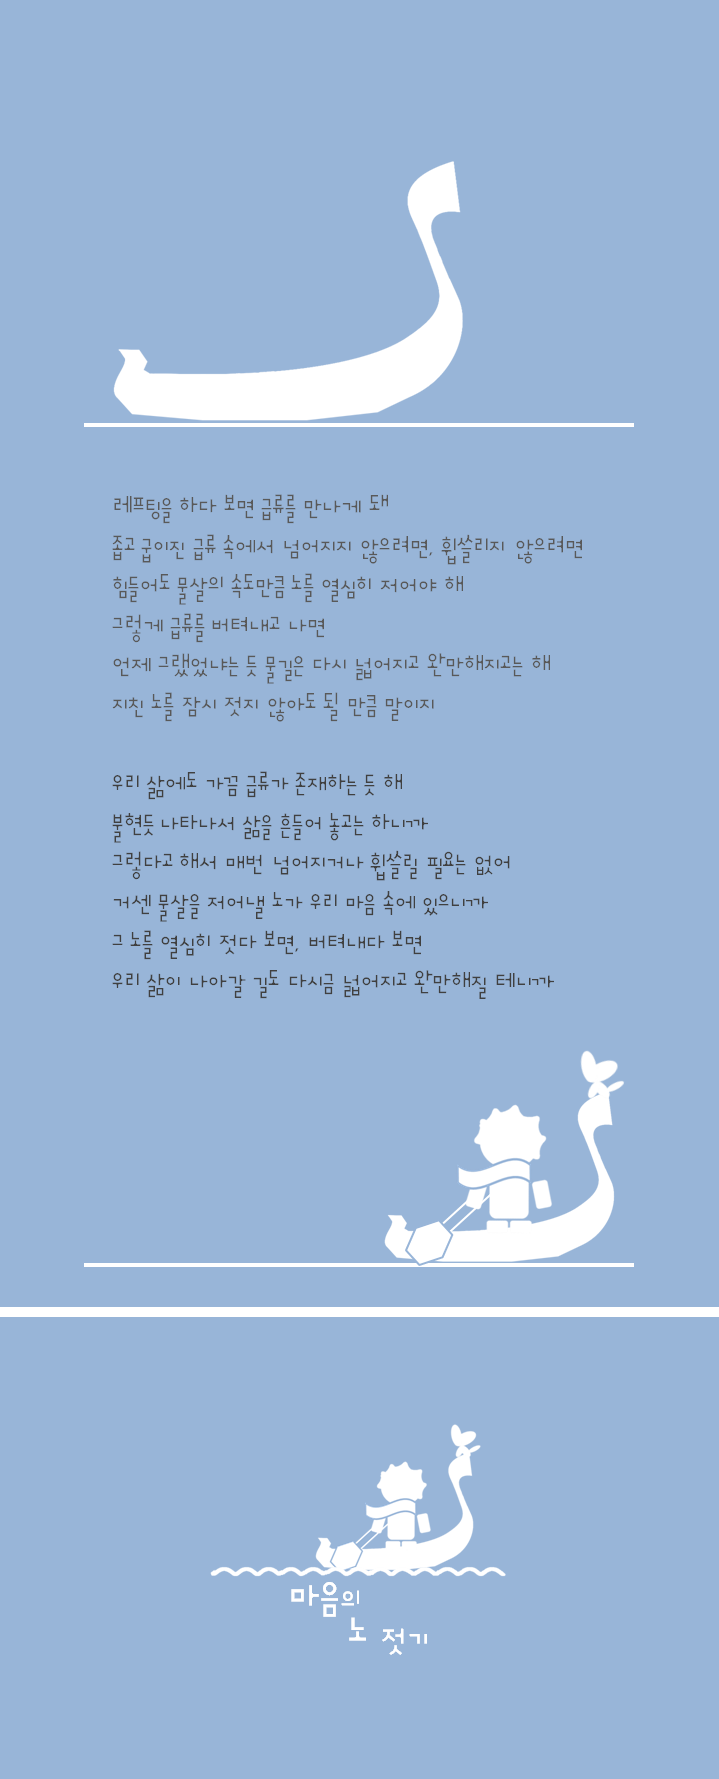 레프팅을 하다 보면 급류를 만나게 돼
좁고 굽이진 급류 속에서 넘어지지 않으려면, 휩쓸리지 않으려면
힘들어도 물살의 속도만큼 노를 열심히 저어야 해
그렇게 급류를 버텨내고 나면
언제 그랬었냐는 듯 물길은 다시 넓어지고 완만해지고는 해
지친 노를 잠시 젓지 않아도 될 만큼 말이지
우리 삶에도 가끔 급류가 존재하는 듯 해
불현듯 나타나서 삶을 흔들어 놓고는 하니까
그렇다고 해서 매번 넘어지거나 휩쓸릴 필요는 없어
거센 물살을 저어낼 노가 우리 마음 속에 있으니까
그 노를 열심히 젓다 보면, 버텨내다 보면
우리 삶이 나아갈 길도 다시금 넓어지고 완만해질 테니까
마음의
노 젓기